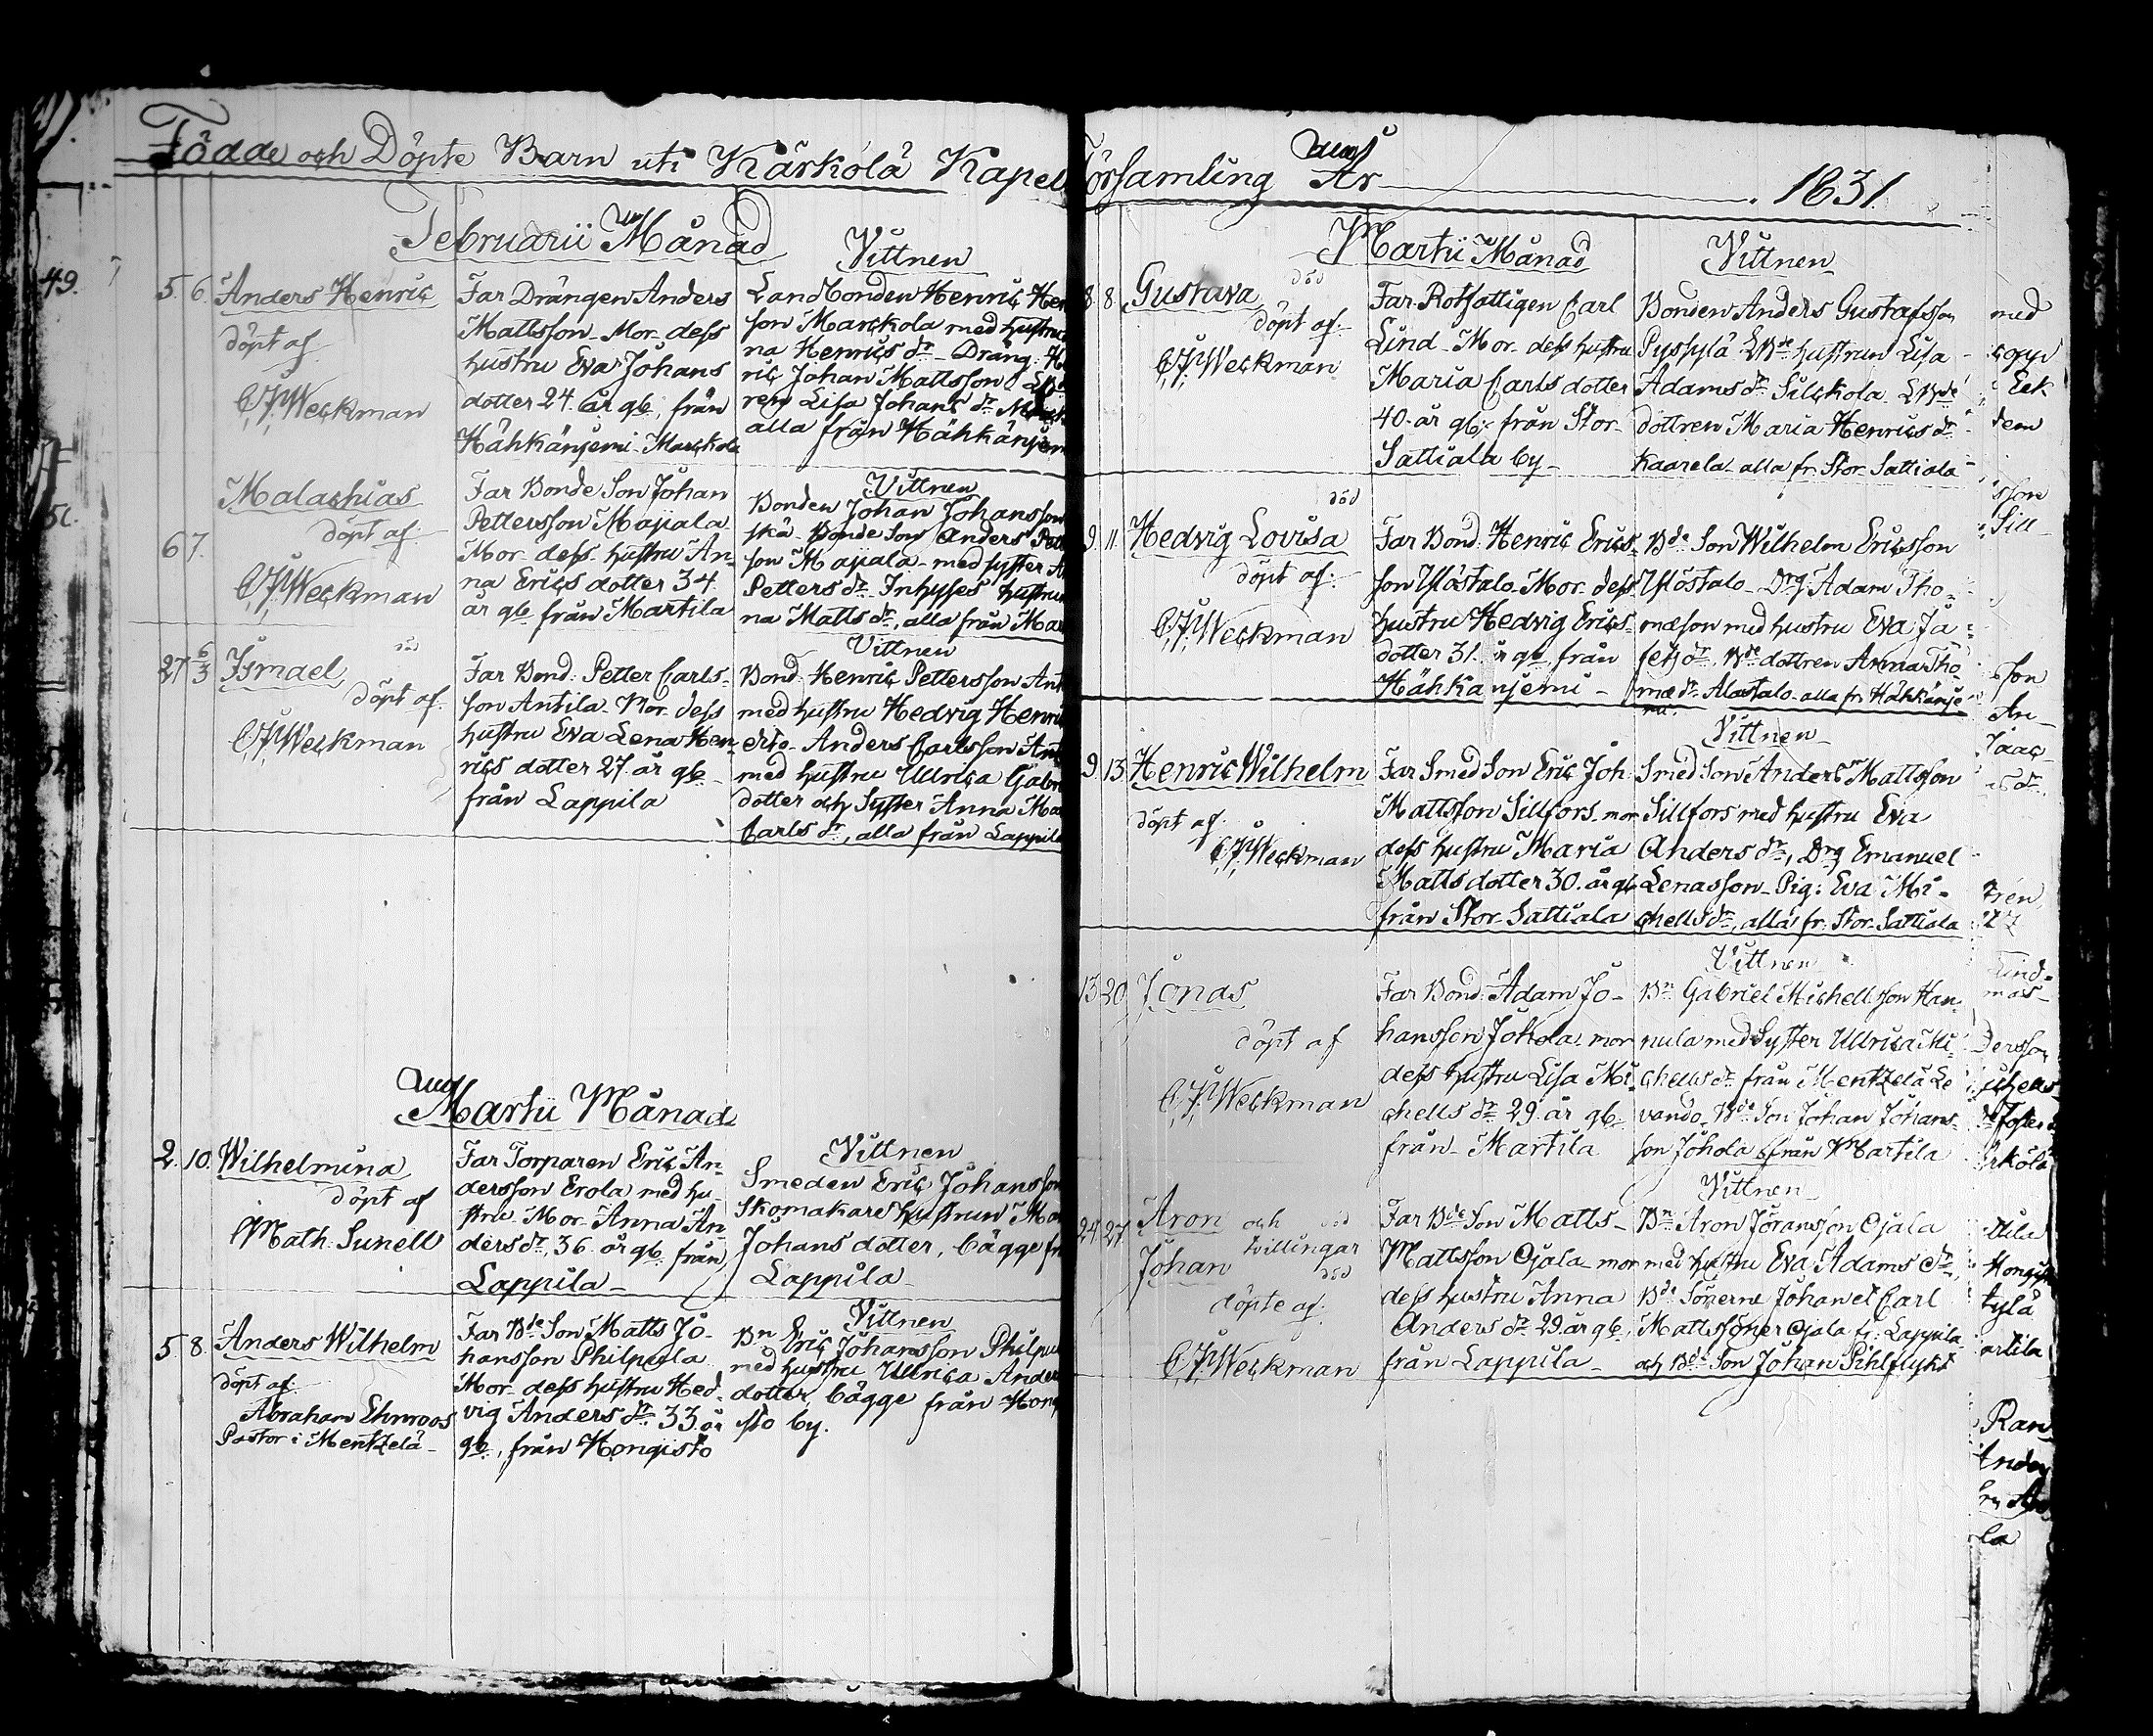 Födde och Döpte Barn uti Kärkölä Kapell
Församling År 1831
Februarii Månad
Vittnen
5. 6. Anders Henriç
döpt af
C.J. Weckman
Far Drängen Anders
Mattsson Mor dess
hustru Eva Johans
dotter 24. år gb, från
Hähkänjemi Marckola
Landbonden Henriç Hen
son Marckola med hustru
na Henriçs dr Dräng: He
riç Johan Mattsson
ren Lisa Johans dr
alla från Hähkänjem
6 7. Malachias
döpt af
C.J. Weckman
Far Bonde Son Johan
Pettersson Majiala
Mor dess hustru An
na Eriçs dotter 34
år gb från Martila
Vittnen
Bonden Johan Johansson
skä. Bonde Son Anders Pett
son Majiala med syster A
Petters dr Inhyses hustru
na Matts dr, alla från Mar
27 6/3 Ismael
död
döpt af
C.J. Weckman
Far Bond: Petter Carls
son Antila Mor dess
hustru Eva Lena Hen
riçs dotter 27. år gb
från Lappila
Vittnen
Bond: Henriç Pettersson Ant
med hustru Hedvig Henri
Anders Carlsson Ant
med hustru Ullriça Gabri
dotter och Syster Anna Ma
Carls dr, alla från Lappila
Martii Månad
2. 10. Wilhelmina
döpt af
Math. Sunell
Far Torparen Eriç An
dersson Erola med hu
stru Mor Anna An
ders dr, 36 år gb från
Lappila
Vittnen
Smeden Eriç Johansson
Skomakare hustrun Mar
Johans dotter, bägge fr
Lappila
5. 8. Anders Wilhelm
döpt af
Abraham Ehnroos
Pastor i Mentzelä
Far Bde Son Matts Jo
hansson Philpula
Mor dess hustru Hed
vig Anders dr 33 år
gb, från Hongisto
Vittnen
Bn Eriç Johansson Philpu
med hustru Ullriça Ander
dotter, bägge från Hong
sto by.
Martii Månad
Vittnen
8. 8. Gustava
död
döpt af
C.J. Weckman
Far Rotfattigen Carl
Lind Mor dess hustru
Maria Carls dotter
40. år gb, från Stor
Sattiala by
Bonden Anders Gustafsson
Pyssylä hustrun Lisa
Adams dr Silckola
dottren Maria Henriçs dr
Kaarela alla fr. Stor Sattiala
9. 11. Hedvig Lovisa
död
döpt af
C.J. Weckman
Far Bond: Henriç Eriçs
son Ylöstalo Mor dess
hustru Hedvig Eriçs
dotter 31. år gb från
Hähkänjemi
Bde Son Wilhelm Eriçsson
Ylöstalo Drg: Adam Tho
mæson med hustru Eva Ja
dr. Bde dottren Anna Tho
mæ dr Alastalo alla fr. Hähkänje
mi.
Vittnen
9. 13. Henriç Wilhelm
döpt af
C.J. Weckman
Far Smed Son Eriç Joh
Mattsson Sillfors mor
dess hustru Maria
Matts dotter 30. år gb
från Stor Sattiala
Smed Son Anders Mattsson
Sillfors med hustru Eva
Anders dr, Drg Emanuel
Lenasson Pig: Eva Mi
chells dr, alla fr. Stor Sattiala
Vittnen
13 20 Jonas
döpt af
C.J. Weckman
Far Bond: Adam Jo
hansson Johola mor
dess hustru Lisa Mi
chells dr 29. år gb
från Martila
Bn Gabriel Michellsson Han
nula med Syster Ullriça Mi
chells dr från Mentzelä Le
vando. Bde Son Johan Johans
son Johola från Martila
Vittnen
24. 27 Aron och död
Johan tvillingar
död
döpte af
C.J. Weckman
Far Bde Son Matts
Mattsson Ojala mor
dess hustru Anna
Anders dr 29. år gb
från Lappila
Bn Aron Jöransson Ojala
med hustru Eva Adams dr
Bde Sönerne Johan et Carl
Mattssöner Ojala fr: Lappila
och Bde Son Johan Pihlflykt